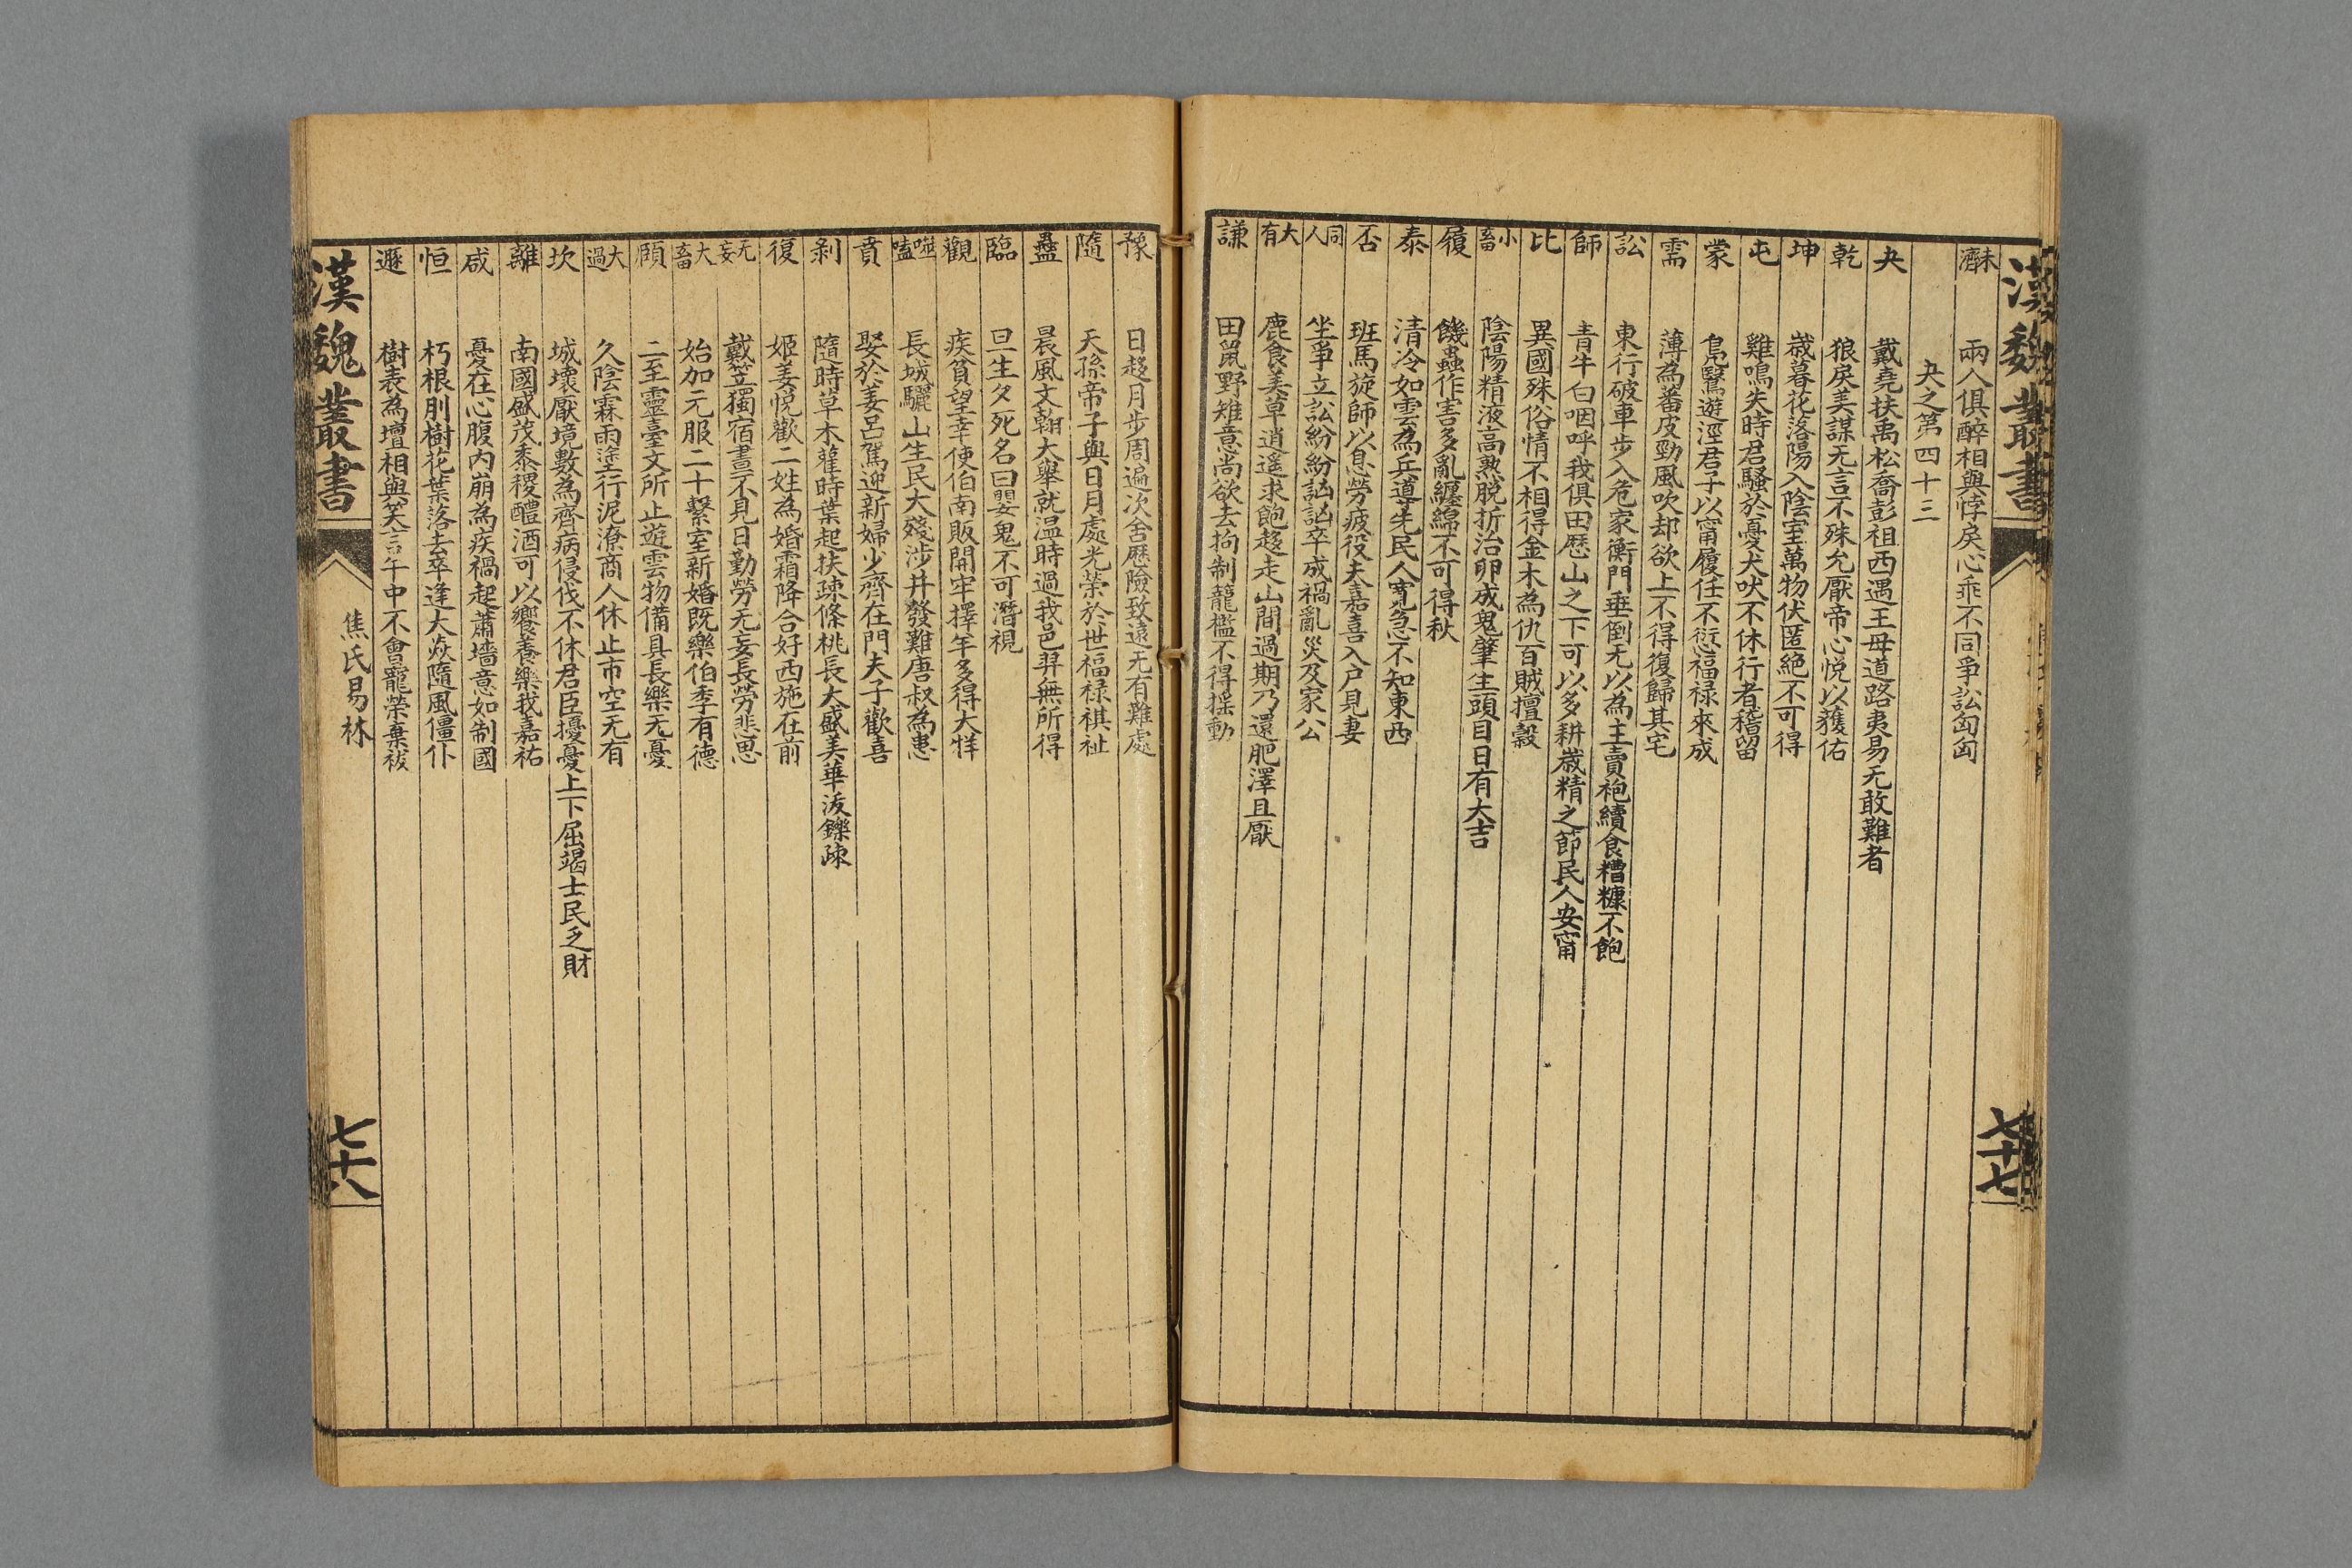 漢魏叢書
七十七
未濟 兩人俱醉相與悖戾心乖不同爭訟匈匈
夬之第四十三
夬 戴堯扶禹松喬彭祖西遇王母道路夷易无敢難者
乾 狼戾美謀无言不殊允厭帝心悅以獲佑
坤 歲暮花落陽入陰室萬物伏匿絕不可得
屯 雞鳴失時君騷於憂犬吠不休行者稽留
蒙 鳧鷖遊涇君子以甯履任不愆福禄來成
需 薄為蕃皮勁風吹却欲上不得復歸其宅
訟 東行破車步入危家衡門垂倒无以為主賣袍續食糟糠不飽
師 青牛白咽呼我俱田歷山之下可以多耕歲精之節民人安甯
比 異國殊俗情不相得金木為仇百賊擅殺
小畜 陰陽精液高熟脫折治卵成䰟肇生頭目日有大吉
履 饑蟲作害多亂纏綿不可得秋
泰 清冷如雲為兵道先民人寃急不知東西
否 班馬旋師以息勞疲役夫嘉喜入户見妻
同人 坐爭立訟紛紛訩訩卒成禍亂災及家公
大有 鹿食美草逍遙求飽趍走山間過期乃還肥澤且厭
謙 田鼠野雉意尚欲去拘制籠檻不得摇動
豫 日趍月步周遍次舍歷險致遠无有難處
隨 天孫帝子與日月處光榮於世福禄祺祉
蠱 晨風文翰大舉就温時過我邑羿無所得
臨 旦生夕死名曰嬰鬼不可潛視
觀 疾貧望幸使伯南販開牢擇羊多得大牂
噬嗑 長城驪山生民大殘涉井發難唐叔為患
賁 娶於姜吕駕迎新婦少齊在門夫子歡喜
剥 隨時草木蕐時葉起扶疎條桃長大盛美華沃鑠疎
復 姬姜悅歡二姓為婚霜降合好西施在前
无妄 戴笠獨宿晝不見日勤勞无妄長勞悲思
大畜 始加元服二十繫室新婚既樂伯季有德
頤 二至靈臺文所止遊雲物備具長樂无憂
大過 久陰霖雨塗行泥潦商人休止市空无有
坎 城壞厭境數為齊病侵伐不休君臣擾憂上下屈竭士民乏財
離 南國盛茂黍稷醴酒可以饗養樂我嘉祐
咸 憂在心腹内崩為疾禍起蕭墻意如制國
恒 朽根刖樹花葉落去卒逢大焱隨風僵仆
遯 樹表為壇相與笑言午中不會寵榮棄袚
漢魏叢書
焦氏易林
七十八